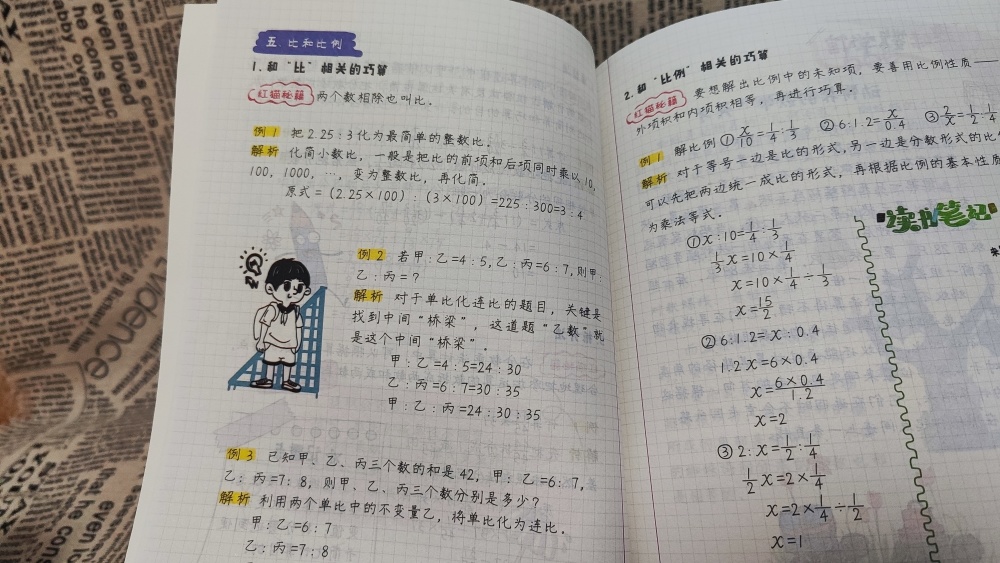 五. 比和比例
1. 和“比”相关的巧算
红猫秘籍 两个数相除也叫比.
例 1 把 2.25 : 3 化为最简单的整数比.
解析 化简小数比, 一般是把比的前项和后项同时乘以 10,
100, 1000, …, 变为整数比, 再化简.
原式 = (2.25×100) : (3×100) =225 : 300=3 : 4
例 2 若甲 : 乙 =4 : 5, 乙 : 丙 =6 : 7, 则甲 :
乙 : 丙 = ?
解析 对于单比化连比的题目, 关键是
找到中间“桥梁”, 这道题“乙数”就
是这个中间“桥梁”.
甲 : 乙 =4 : 5=24 : 30
乙 : 丙 =6 : 7=30 : 35
甲 : 乙 : 丙 =24 : 30 : 35
例 3 已知甲、乙、丙三个数的和是 42, 甲 : 乙 =6 : 7,
乙 : 丙 =7 : 8, 则甲、乙、丙三个数分别是多少?
解析 利用两个单比中的不变量乙, 将单比化为连比.
甲 : 乙 =6 : 7
乙 : 丙 =7 : 8
2. 和“比例”相关的巧算
红猫秘籍 要想解出比例中的未知项, 要善用比例性质——
外项积和内项积相等, 再进行巧算.
例 1 解比例 ① x/10 = 1/4 : 1/3 ② 6 : 1.2= x/0.4 ③ 2/x = 1/2 : 1/4
解析 对于等号一边是比的形式, 另一边是分数形式的比
可以先把两边统一成比的形式, 再根据比例的基本性质
为乘法等式.
① x : 10= 1/4 : 1/3
1/3 x =10× 1/4
x =10× 1/4 ÷ 1/3
x = 15/2
② 6 : 1.2= x : 0.4
1.2 x =6×0.4
x = 6×0.4/1.2
x =2
③ 2 : x = 1/2 : 1/4
1/2 x =2× 1/4
x =2× 1/4 ÷ 1/2
x =1
读书笔记